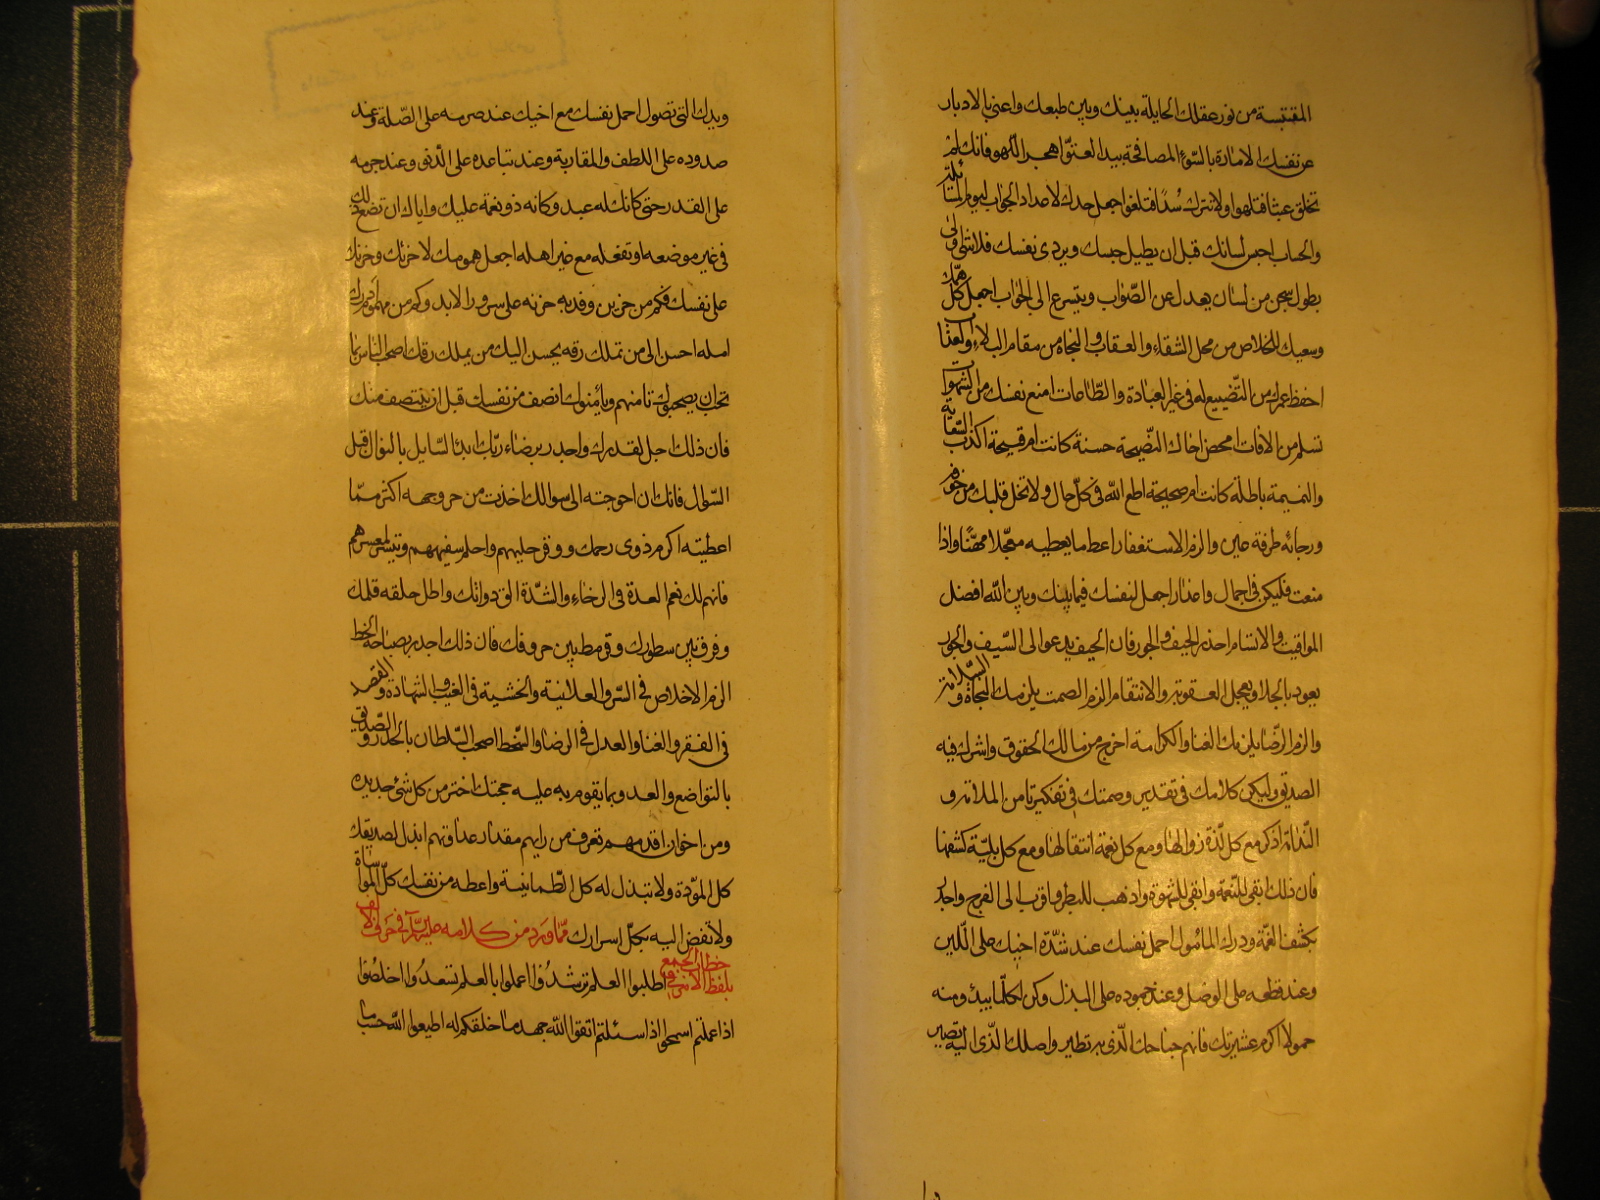 المقتبسة من نور عقلك الحايلة بينك وبين طبعك واعنى بالادبار
عن نفسك الامارة بالسّوء المصافحة بيد العتوّ اهجر اللّهو فانك لم
تخلق عبثا فتلهوا ولا تترك سُدًا فتلغوا اجعل جدك لاعداد الجواب ليوم المسائلة
والحساب احبس لسانك قبل ان يطيل حبسك ويردى نفسك فلا شئ اولى
بطول سجن من لسان يعدل عن الصّواب ويتسرع الى الجواب اجعل كلّ همّك
وسعيك للخلاص من محل الشقاء والعقاب والنجاة من مقام البلاء والعذاب
احفظ عمرك من التّضييع له فى غير العبادة والطّاعات امنع نفسك من الشهوات
تسلم من الافات امحض اخاك النّصيحة حسنة كانت ام قبيحة اكذب السّعاية
والنميمة باطلة كانت ام صحيحة اطع اللّه فى كلّ حال ولا تخل قلبك من خوفه
ورجائه طرفة عين والزم الاستغفار اعط ما يعطيه معجّلا مهنّئا واذا
منعت فليكن فى اجمال واعذار اجعل لنفسك فيما بينك وبين اللّه افضل
المواقيت والاقسام احذر الحيف والجور فان الحيف يدعو الى السّيف والجور
يعود بالجلاء ويعجل العقوبة والانتقام الزم الصمت يلزمك النجاة والسّلامة
والزم الرّضا يلزمك الغنا والكرامة اخرج من مالك الحقوق واشرك فيه
الصديق وليكن كلامك فى تقدير وصمتك فى تفكير تامن الملامة و
النّدامة اذكر مع كل لذّة زوالها ومع كل نعمة انتقالها ومع كل بليّة كشفها
فان ذلك ابقى للنّعمة وانقى للشهوة واذهب للبطر واقرب الى الفرج واجدر
بكشف الغمّة ودرك المامُول احمل نفسك عند شدّة اخيك على اللّين
وعند قطعه على الوصل وعند جموده على البذل وكن لكلّما يبدء ومنه
حمولا اكرم عشيرتك فانهم جناحك الّذى به تطير واصلك الّذى اليه تصير
ويدك التى تصول احمل نفسك مع اخيك عند صرمه على الصّلة وعند
صدوده على اللطف والمقاربة وعند تباعده على الدّنو وعند جرمه
على القدر حتى كانك له عبد وكانه ذو نعمة عليك واياك ان تضع ذلك
فى غير موضعه او تفعله مع غير اهله اجعل همومك لاخرتك وحزنك
على نفسك فكم من حزين وفد به حزنه على سرور الابد وكم من مهموم ادرك
امله احسن الى من تملك رقه يحسن اليك من يملك رقك اصحب الناس بما
تحب ان يصحبوك تامنهم ويامنوك انصف من نفسك قبل ان ينتصف منك
فان ذلك اجل لقدرك واجدر برضاء ربّك ابدا السّايل بالنوال قبل
السّؤال فانك ان احوجته الى سوالك اخذت من حر وجهه اكثر ممّا
اعطيته اكرم ذوى رحمك ووقر حليمهم واحلم سفيههم وتيسّر لمعسرهم
فانهم لك نعم العدة فى الرخاء والشّدّة الق دواتك واطل جلفة قلمك
وفرق بين سطورك وقرمط بين حروفك فان ذلك اجدر بصباحة الخط
الزم الاخلاص فى السّر والعلانية والخشية فى الغيب والشهادة والقصد
فى الفقر والغنا والعدل فى الرضا والسّخط اصحب السّلطان بالحذر والصّديق
بالتواضع والعدو بما يقوم به عليه حجتك اختر من كل شئ جديده
ومن اخوان اقدمهم تعرف من رايهم مقدار عداوتهم ابذل لصديقك
كل المودّة ولا تبذل له كل الطّمانينة واعطه من نفسك كلّ المواساة
ولا تفض اليه بكلّ اسرارك ممّا ورد من كلامه عليه السّلام فى حرف الالف
بلفظ الامر فى خطاب الجمع اطلبوا العلم ترشدُوا اعملوا بالعلم تسعدُوا اخلصُوا
اذا عملتم اسمحوا اذا سئلتم اتقوا اللّه جهد ما خلقكم له اطيعوا اللّه حسب ما